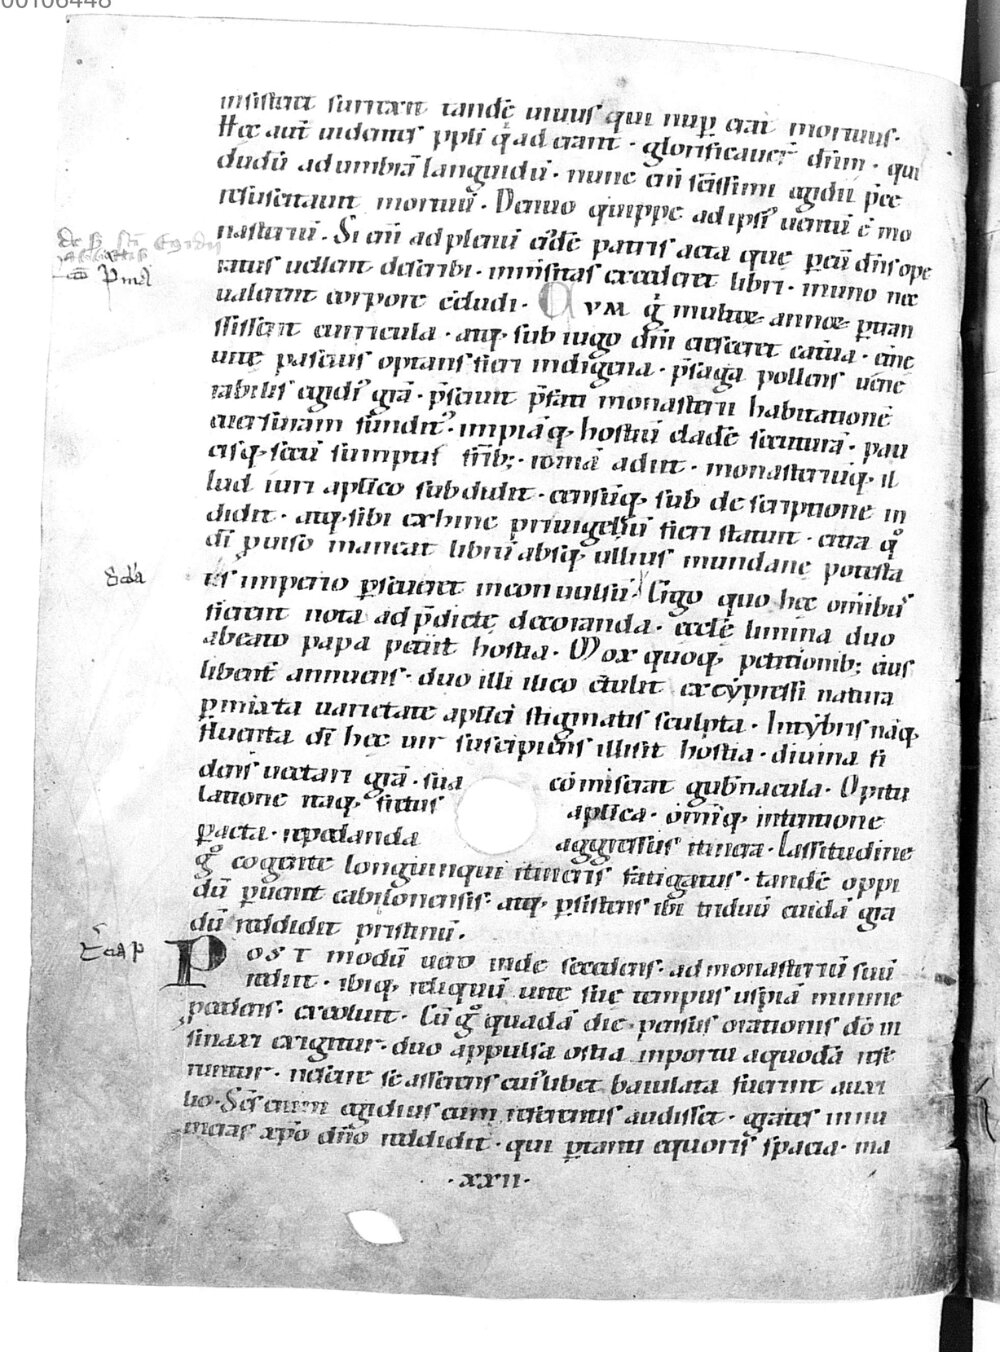 00106448
insisteret surrexit tandē uiuus qui nup̄ erat mortuus.
Hec aut̄ uidentes ppli q̇ ad erant · glorificauer̄ dn̄m · qui
dudū ad umbrā languidū · nunc eū sc̄issimi egidii p̄ce
resuscitauit mortuū · Denuo quippe ad ipsī uentū ē mo
nasteriū . Si eni ad plenū eidē patris acta que p̄ eū dn̄s ope
ratus uellent describi · inmēsitas excederet libri · immo nec
ualerent corpore cludi · CVM g̊ multoꝝ annoꝝ p̄tran
sissent curricula · atq; sub iugo dn̄i cresceret caterua · eiꝰ
uite pascuis optans fieri indigena · p̄saga pollens uene
rabilis egidiꝰ grā · p̄sciuit p̄fati monasterii habitationē
euersuram funditꝰ · impiāq; hostiū cladē secuturā · pau
cisq; secū sumptis fr̄ib; · romā adiit · monasteriūq; il
lud iuri aplico subdidit · censūq; sub descriptione in
didit · atq; sibi ex hinc priuigelium fieri statuit · cura qͦ
dī puiso maneat liberū absq; ullius mundane potesta
tis imperio p̄seueret inconuulsū · Ergo quo hec omībus
fierent nota ad p̄dicte decoranda · eccle limina duo
a beato papa petiit hostia · Mox quoq; petitionib; eius
libent̄ annuens · duo illi ilico c̄tulit ex cypressi natura
p̄mixta uarietate aplici stigmatis sculpta · In tybris naq;
fluenta dī hec uir suscipiens illisit hostia · diuina fi
dens uectari grā · sua cōmiserat gub̄nacula · Opitu
latione naq; fretus aplica · om̄iq; intentione
p̄acta · repedanda aggressus itinera · Lassitudine
g̊ cogente longinqui itineris fatigatus · tandē oppi
dū p̄uenit cabilonensis · atq; p̄sistens ibi triduū cuidā gra
dū reddidit pristinū .
POST modū uero inde secedens · ad monasteriū suū
rediit · ibiq; reliquū uite sue tempus uspiā minime
recedens · excoluit · Cū g̊ quadā die · pensus orationis dō in
sinuari exigitur · duo appulsa ostia in portu a quodā refe
runtur · nescire se asserens cuiꝰ libet baiulata fuerint auxi
lio · Scs̄ enim egidius cum referentis audisset · grates innu
meras xp̄o dn̄o reddidit · qui p̄ tanti equoris spacia · ma
· xxii ·